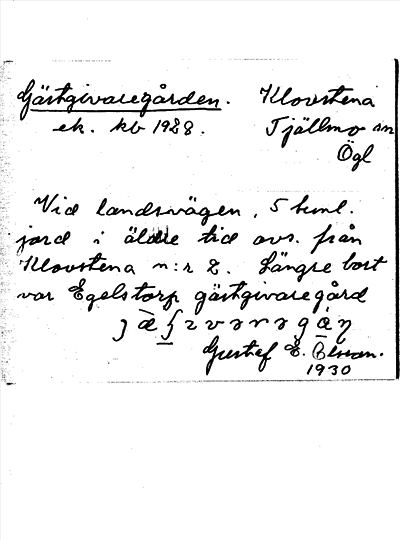 Gästgivaregården. Klovstena
ek. kb 1928. Tjällmo sn
Ögl
Vid landsvägen, 5 tunl.
jord i äldre tid avs. från
Klovstena n:r 2. Längre bort
var Egelstorp gästgivaregård
Gustaf E.
1930